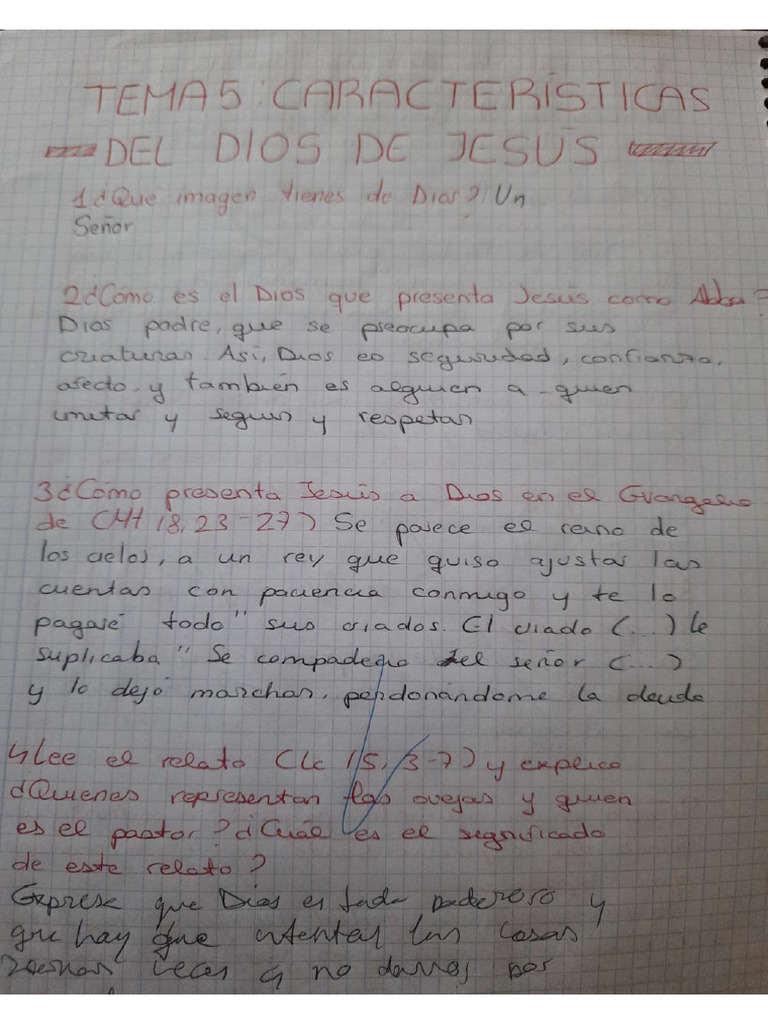 TEMA 5: CARACTERÍSTICAS
DEL DIOS DE JESÚS
1¿Que imagen tienes de Dios? Un
Señor
2¿Cómo es el Dios que presenta Jesús como Abba?
Dios padre, que se preocupa por sus
criaturas Así, Dios es seguridad, confianza,
afecto, y también es alguien a quien
imitar y seguir y respetar
3¿Como presenta Jesús a Dios en el Evangelio
de (Mt 18, 23-27) Se parece el reino de
los cielos, a un rey que quiso ajustar las
cuentas con paciencia conmigo y te lo
pagaré todo" sus criados. El criado (...) le
suplicaba " Se compadecio el señor (...)
y lo dejó marchar, perdonándome la deuda
4 Lee el relato (Lc 15, 3-7) y explica
¿Quienes representan las ovejas y quien
es el pastor? ¿Cuál es el significado
de este relato?
Exprese que Dios es todo poderoso y
que hay que intentar las cosas
veces y no darnos por